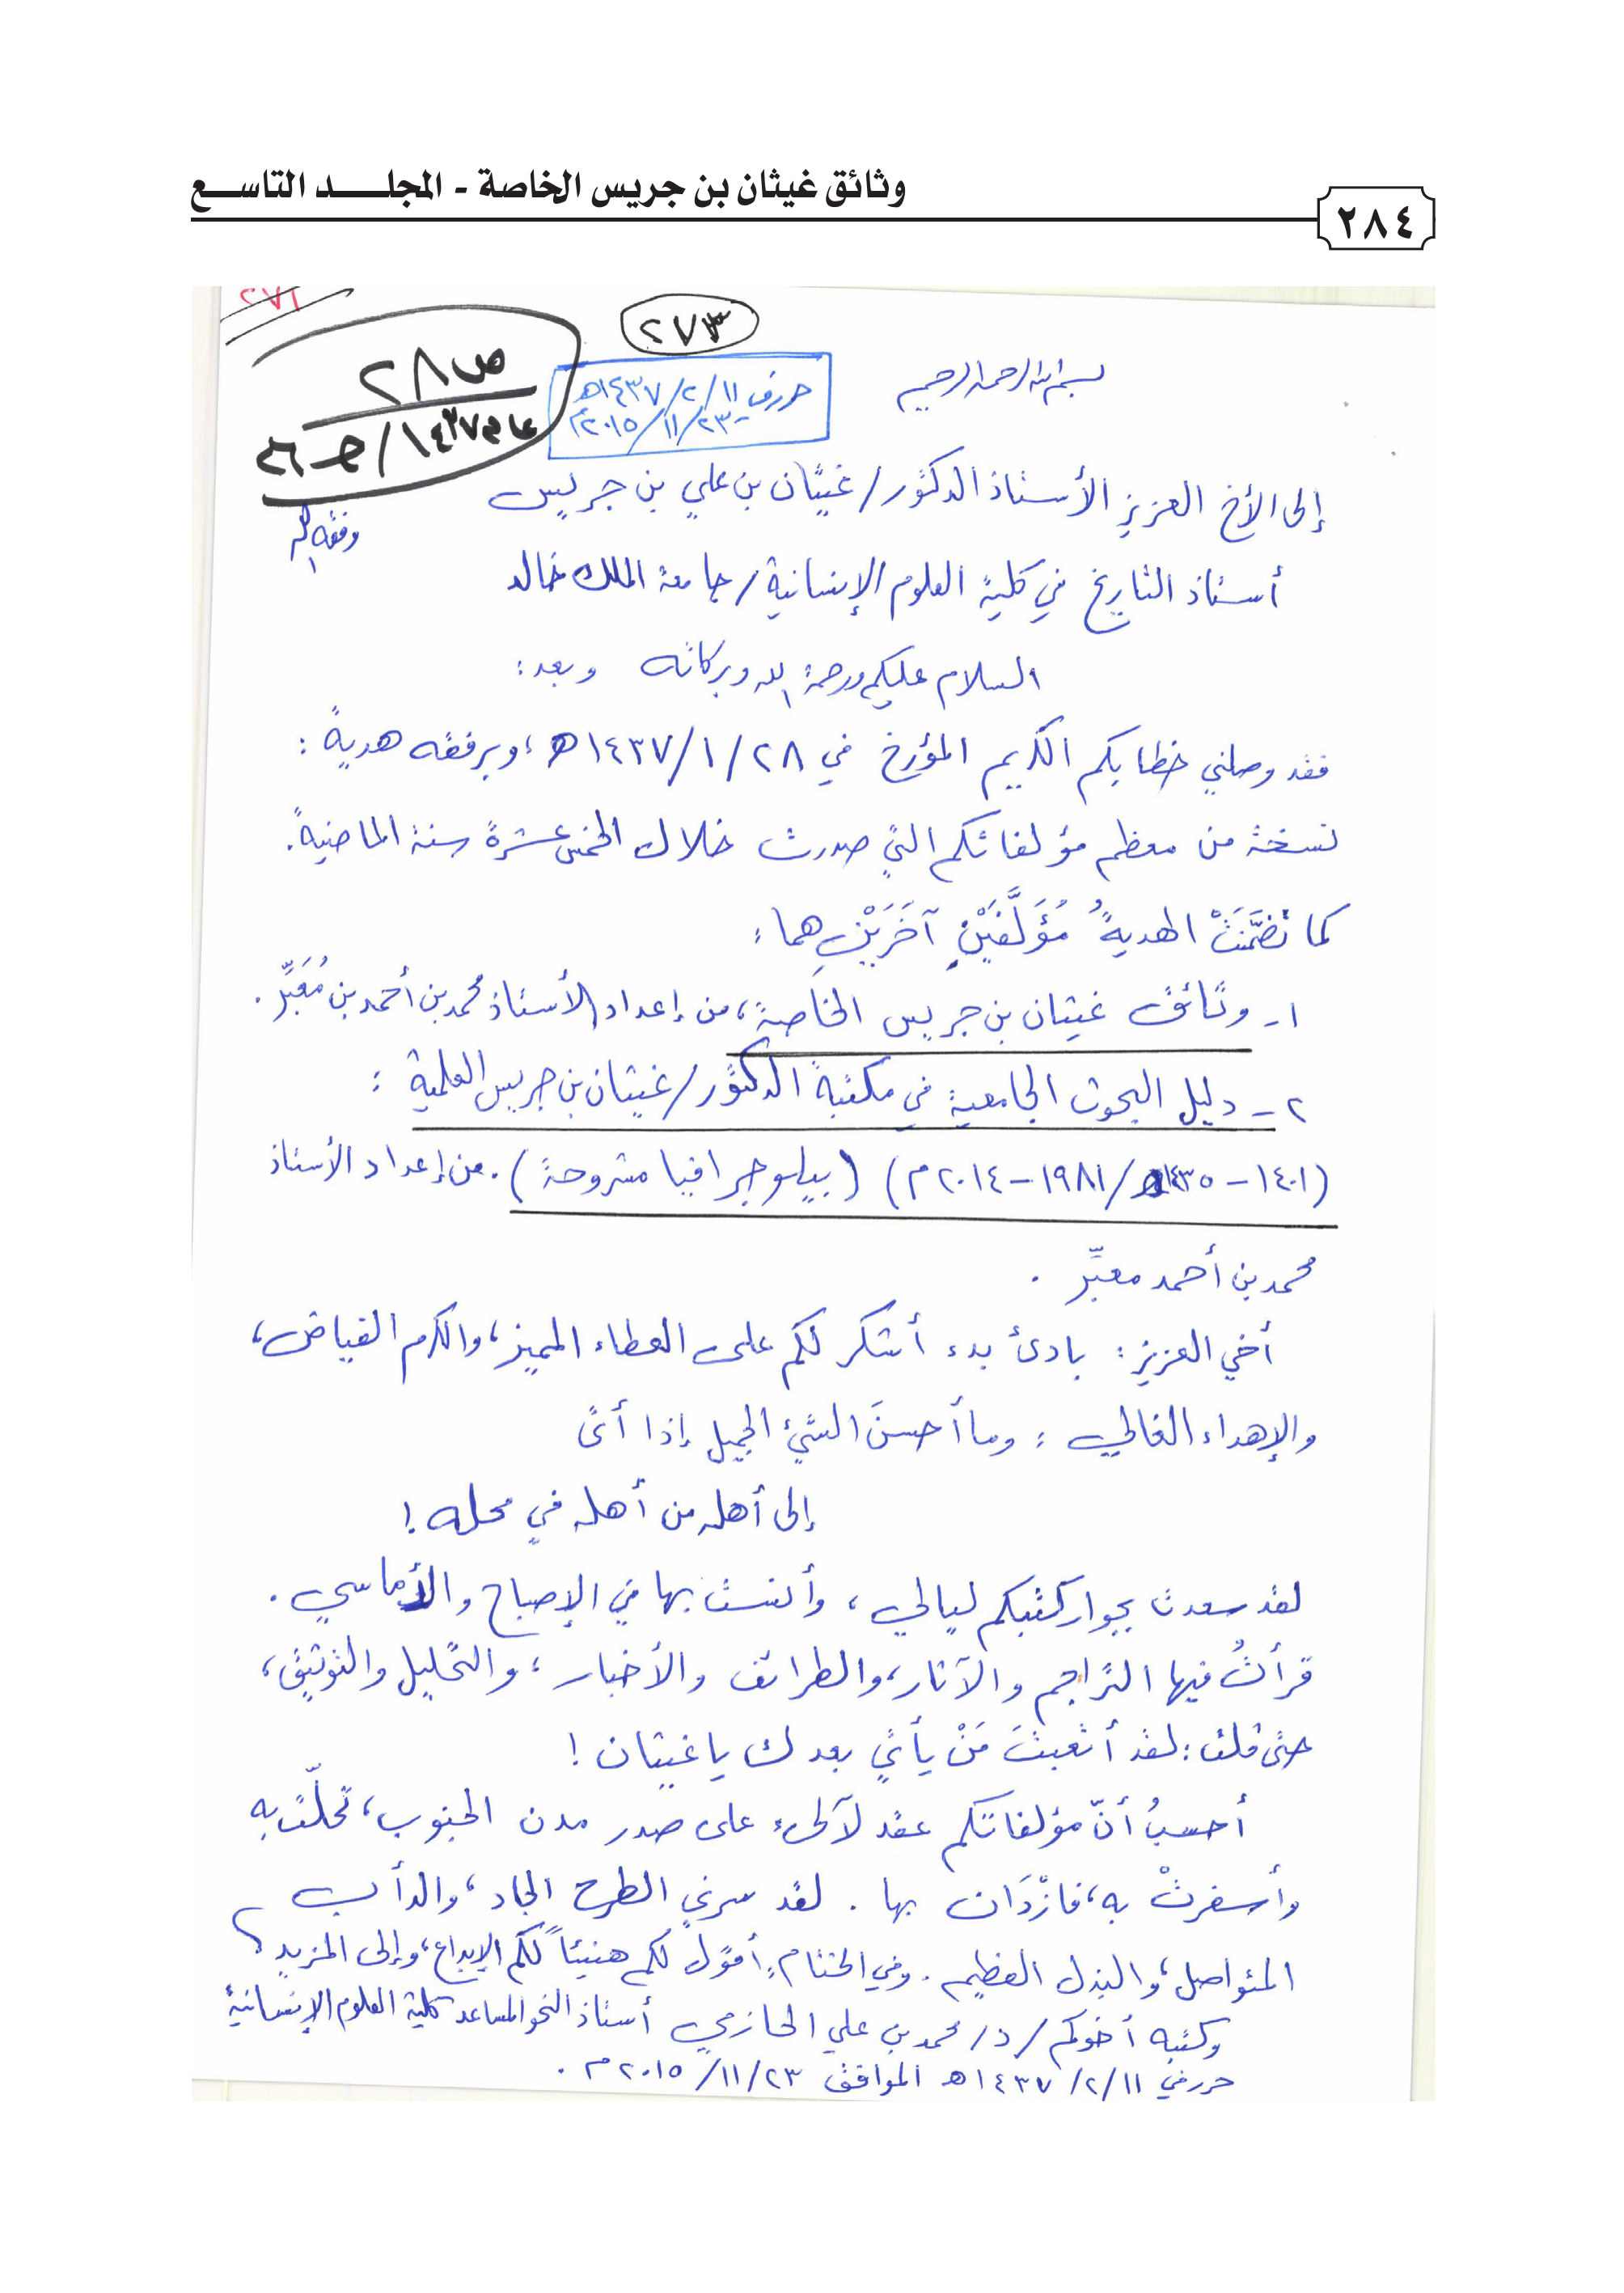 وثائق غيثان بن جريس الخاصة - المجلـــد التاســـع
٢٨٤
٢٧٦
٢٧٣
ص ٢٨
عام ١٤٣٧هـ / ج ٢٦
حرر في ١١/ ٢/ ١٤٣٧هـ
٢٣/ ١١/ ٢٠١٥م
بسم الله الرحمن الرحيم
إلى الأخ العزيز الأستاذ الدكتور/ غيثان بن علي بن جريس
وفقه الله
أستاذ التاريخ في كلية العلوم الإنسانية/ جامعة الملك خالد
السلام عليكم ورحمة الله وبركاته وبعد:
فقد وصلني خطابكم الكريم المؤرخ في ٢٨/ ١/ ١٤٣٧هـ، وبرفقه هديةً:
نسخة من معظم مؤلفاتكم التي صدرت خلال الخمس عشرةَ سنة الماضية.
كما تضمَّنَتْ الهديةُ مُؤَلَّفَيْنِ آخَرَيْنِ هما:
١- وثائق غيثان بن جريس الخاصة، من إعداد الأستاذ محمد بن أحمد بن مُعَبِّر.
٢- دليل البحوث الجامعية في مكتبة الدكتور/ غيثان بن جريس العلمية:
(١٤٠١-١٤٣٥هـ/١٩٨١-٢٠١٤م) (بيلوجرافيا مشروحة). من إعداد الأستاذ
محمد بن أحمد معبِّر.
أخي العزيز: بادئ بدء أشكر لكم على العطاء المميز، والكرم الفياض،
والإهداء الغالي: وما أحسنَ الشيْء الجميل إذا أتى
إلى أهله من أهله في محله!
لقد سعدت بجوار كتبكم ليالي، وأنست بها في الإصباح والأماسي.
قرأتُ فيها التراجم والآثار، والطرائف والأخبار، والتحليل والتوثيق،
حتى قلت: لقد أتعبتَ مَنْ يأتي بعدك يا غيثان!
أحسبُ أنّ مؤلفاتكم عقد لآلىء على صدر مدن الجنوب، تحلّت به
وأسفرتْ به، فازْدَان بها. لقد سرني الطرح الجاد، والدأب
المتواصل، والبذل العظيم. وفي الختام أقول لكم هنيئاً لكم الإبداع، وإلى المزيد؟
وكتبه أخوكم/ د/ محمد بن علي الحازمي أستاذ النحو المساعد كلية العلوم الإنسانية
حرر في ١١/ ٢/ ١٤٣٧هـ الموافق ٢٣/ ١١/ ٢٠١٥م.